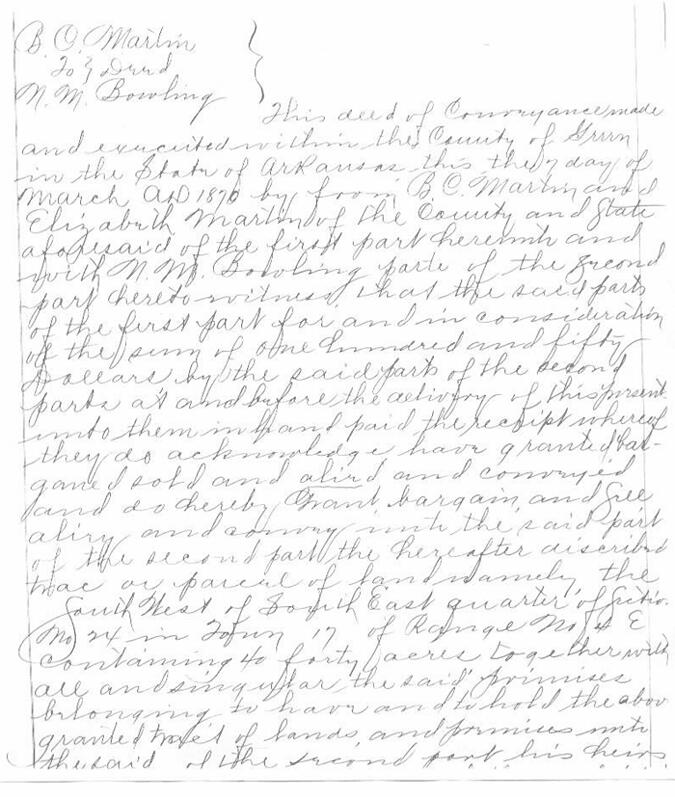 B. O. Martin
To } Deed
N. M. Bowling
This deed of Conveyance made
and executed within the County of Green
in the State of Arkansas this the 7 day of
March AD 1876 by from B. O. Martin and
Elizabeth Martin of the County and State
aforesaid of the first part herewith and
with N. M. Bowling parte of the second
part hereto witness that the said parts
of the first part for and in consideration
of the sum of one hundred and fifty
Dollars by the said parts of the second
parts at and before the delivery of this present
unto them in hand paid the receipt whereof
they do acknowledge have granted bar-
gened sold and alird and conveyed
and do hereby Grant, bargain, and Sell
aliry and convey unto the said part
of the second part the hereafter discribed
trac or parcel of land namely, the
South West of South East quarter of Sectio
No 24 in Town 17 of Range No 4 E
containing 40 forty acres together with
all and singular the said premises
belonging to have and to hold the abov
granted tract of lands and premises unto
the said of the second part his heirs